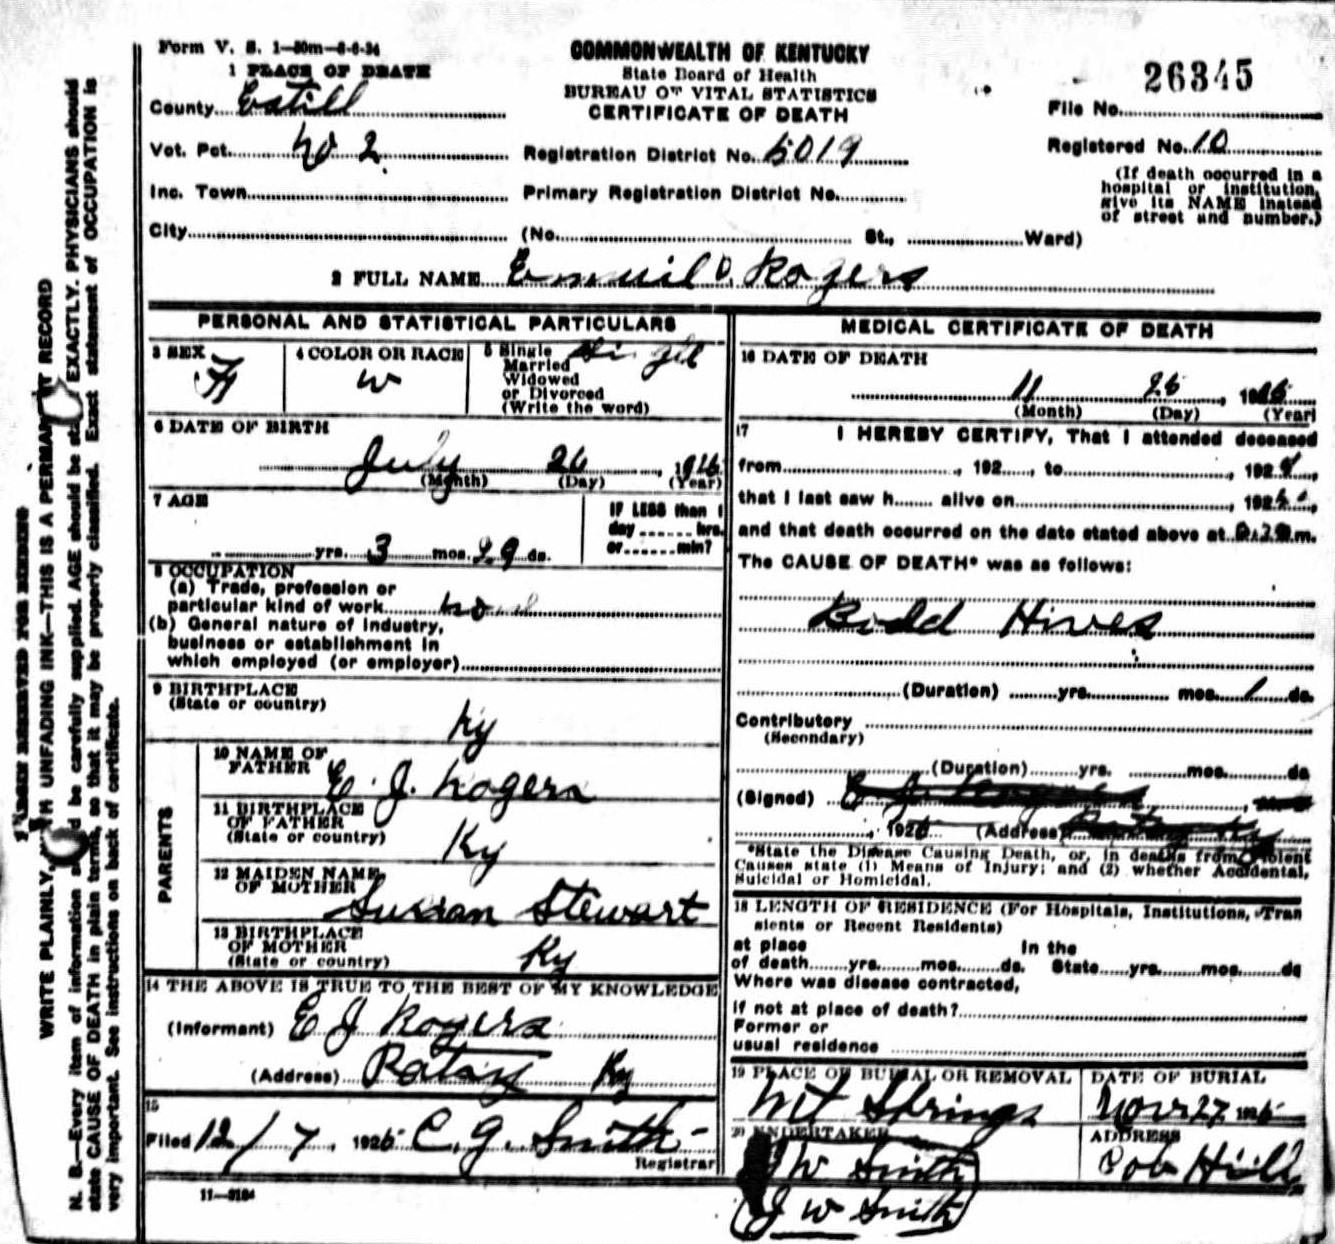 Form V. S. 1—50m—8-6-24
COMMONWEALTH OF KENTUCKY
State Board of Health
BUREAU OF VITAL STATISTICS
CERTIFICATE OF DEATH
26345
File No.
Registered No. 10
(If death occurred in a
hospital or institution,
give its NAME instead
of street and number.)
1 PLACE OF DEATH
County Estill
Vot. Pct. No 2
Registration District No. 5019
Inc. Town
Primary Registration District No.
City (No. St., Ward)
2 FULL NAME Rogers
PERSONAL AND STATISTICAL PARTICULARS
3 SEX
F
4 COLOR OR RACE
W
5 Single
Married
Widowed
or Divorced
(Write the word)
6 DATE OF BIRTH
July 26, 192
(Month) (Day) (Year)
7 AGE
yrs. 3 mos. 29 ds.
IF LESS than 1
day hrs.
or min?
8 OCCUPATION
(a) Trade, profession or
particular kind of work
(b) General nature of industry,
business or establishment in
which employed (or employer)
9 BIRTHPLACE
(State or country)
Ky
PARENTS
10 NAME OF
FATHER E. J. Rogers
11 BIRTHPLACE
OF FATHER
(State or country)
Ky
12 MAIDEN NAME
OF MOTHER Sussan Stewart
13 BIRTHPLACE
OF MOTHER
(State or country)
Ky
14 THE ABOVE IS TRUE TO THE BEST OF MY KNOWLEDGE
(Informant) E J Rogers
(Address) Ky
15
Filed 12/7, 1925 C. G. Smith
Registrar
11—3184
MEDICAL CERTIFICATE OF DEATH
16 DATE OF DEATH
11
(Month) (Day) (Year)
17 I HEREBY CERTIFY, That I attended deceased
from , 192 , to , 192
that I last saw h alive on , 192
and that death occurred on the date stated above at m.
The CAUSE OF DEATH* was as follows:
Bodd Hives
(Duration) yrs. mos. 1 ds.
Contributory
(Secondary)
(Duration) yrs. mos. ds
(Signed)
, 1925 (Address)
*State the Disease Causing Death, or, in deaths from Violent
Causes state (1) Means of Injury; and (2) whether Accidental,
Suicidal or Homicidal.
18 LENGTH OF RESIDENCE (For Hospitals, Institutions, Tran
sients or Recent Residents)
at place In the
of death yrs. mos. ds. State yrs. mos. ds
Where was disease contracted,
if not at place of death?
Former or
usual residence
19 PLACE OF BURIAL OR REMOVAL
Mt Springs
DATE OF BURIAL
Nov 27 1925
20 UNDERTAKER
W Smith
J W Smith
ADDRESS
Cob Hill
MARGIN RESERVED FOR BINDING
WRITE PLAINLY, WITH UNFADING INK—THIS IS A PERMANENT RECORD
N. B.—Every item of information should be carefully supplied. AGE should be stated EXACTLY. PHYSICIANS should
state CAUSE OF DEATH in plain terms, so that it may be properly classified. Exact statement of OCCUPATION is
very important. See instructions on back of certificate.